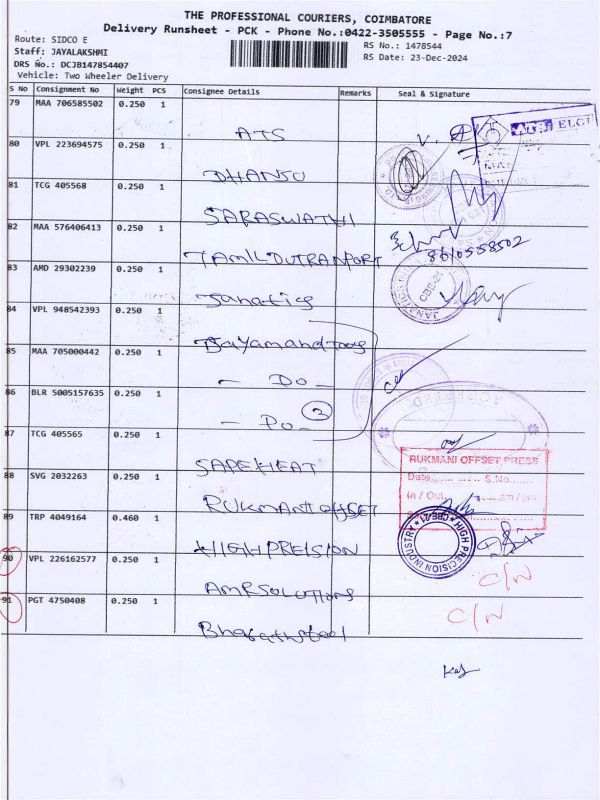 THE PROFESSIONAL COURIERS, COIMBATORE
Delivery Runsheet - PCK - Phone No.:0422-3505555 - Page No.:7
Route: SIDCO E
RS No.: 1478544
Staff: JAYALAKSHMI
RS Date: 23-Dec-2024
DRS No.: DCJB147854407
Vehicle: Two Wheeler Delivery
S No Consignment No Weight PCS Consignee Details Remarks Seal & Signature
79 MAA 706585502 0.250 1 ATS
80 VPL 223694575 0.250 1 DHANSU
81 TCG 405568 0.250 1 SARASWATHI
82 MAA 576406413 0.250 1 TAMILDUTRANPORT
8610558502
83 AMD 29302239 0.250 1 Janatics
84 VPL 948542393 0.250 1
85 MAA 705000442 0.250 1 - Do -
86 BLR 5005157635 0.250 1 - Do - 3
ACCEPTED
87 TCG 405565 0.250 1 SAPEHEAT
RUKMANI OFFSET PRESS
Date S.No
In / Out am / pm
88 SVG 2032263 0.250 1 RUKMANI OFFSET
89 TRP 4049164 0.460 1 HIGH PRECISION
HIGH PRECISION INDUSTRY CBE-21
90 VPL 226162577 0.250 1 AMRSOLUTIONS C/N
91 PGT 4750408 0.250 1 Bharathsteel C/N